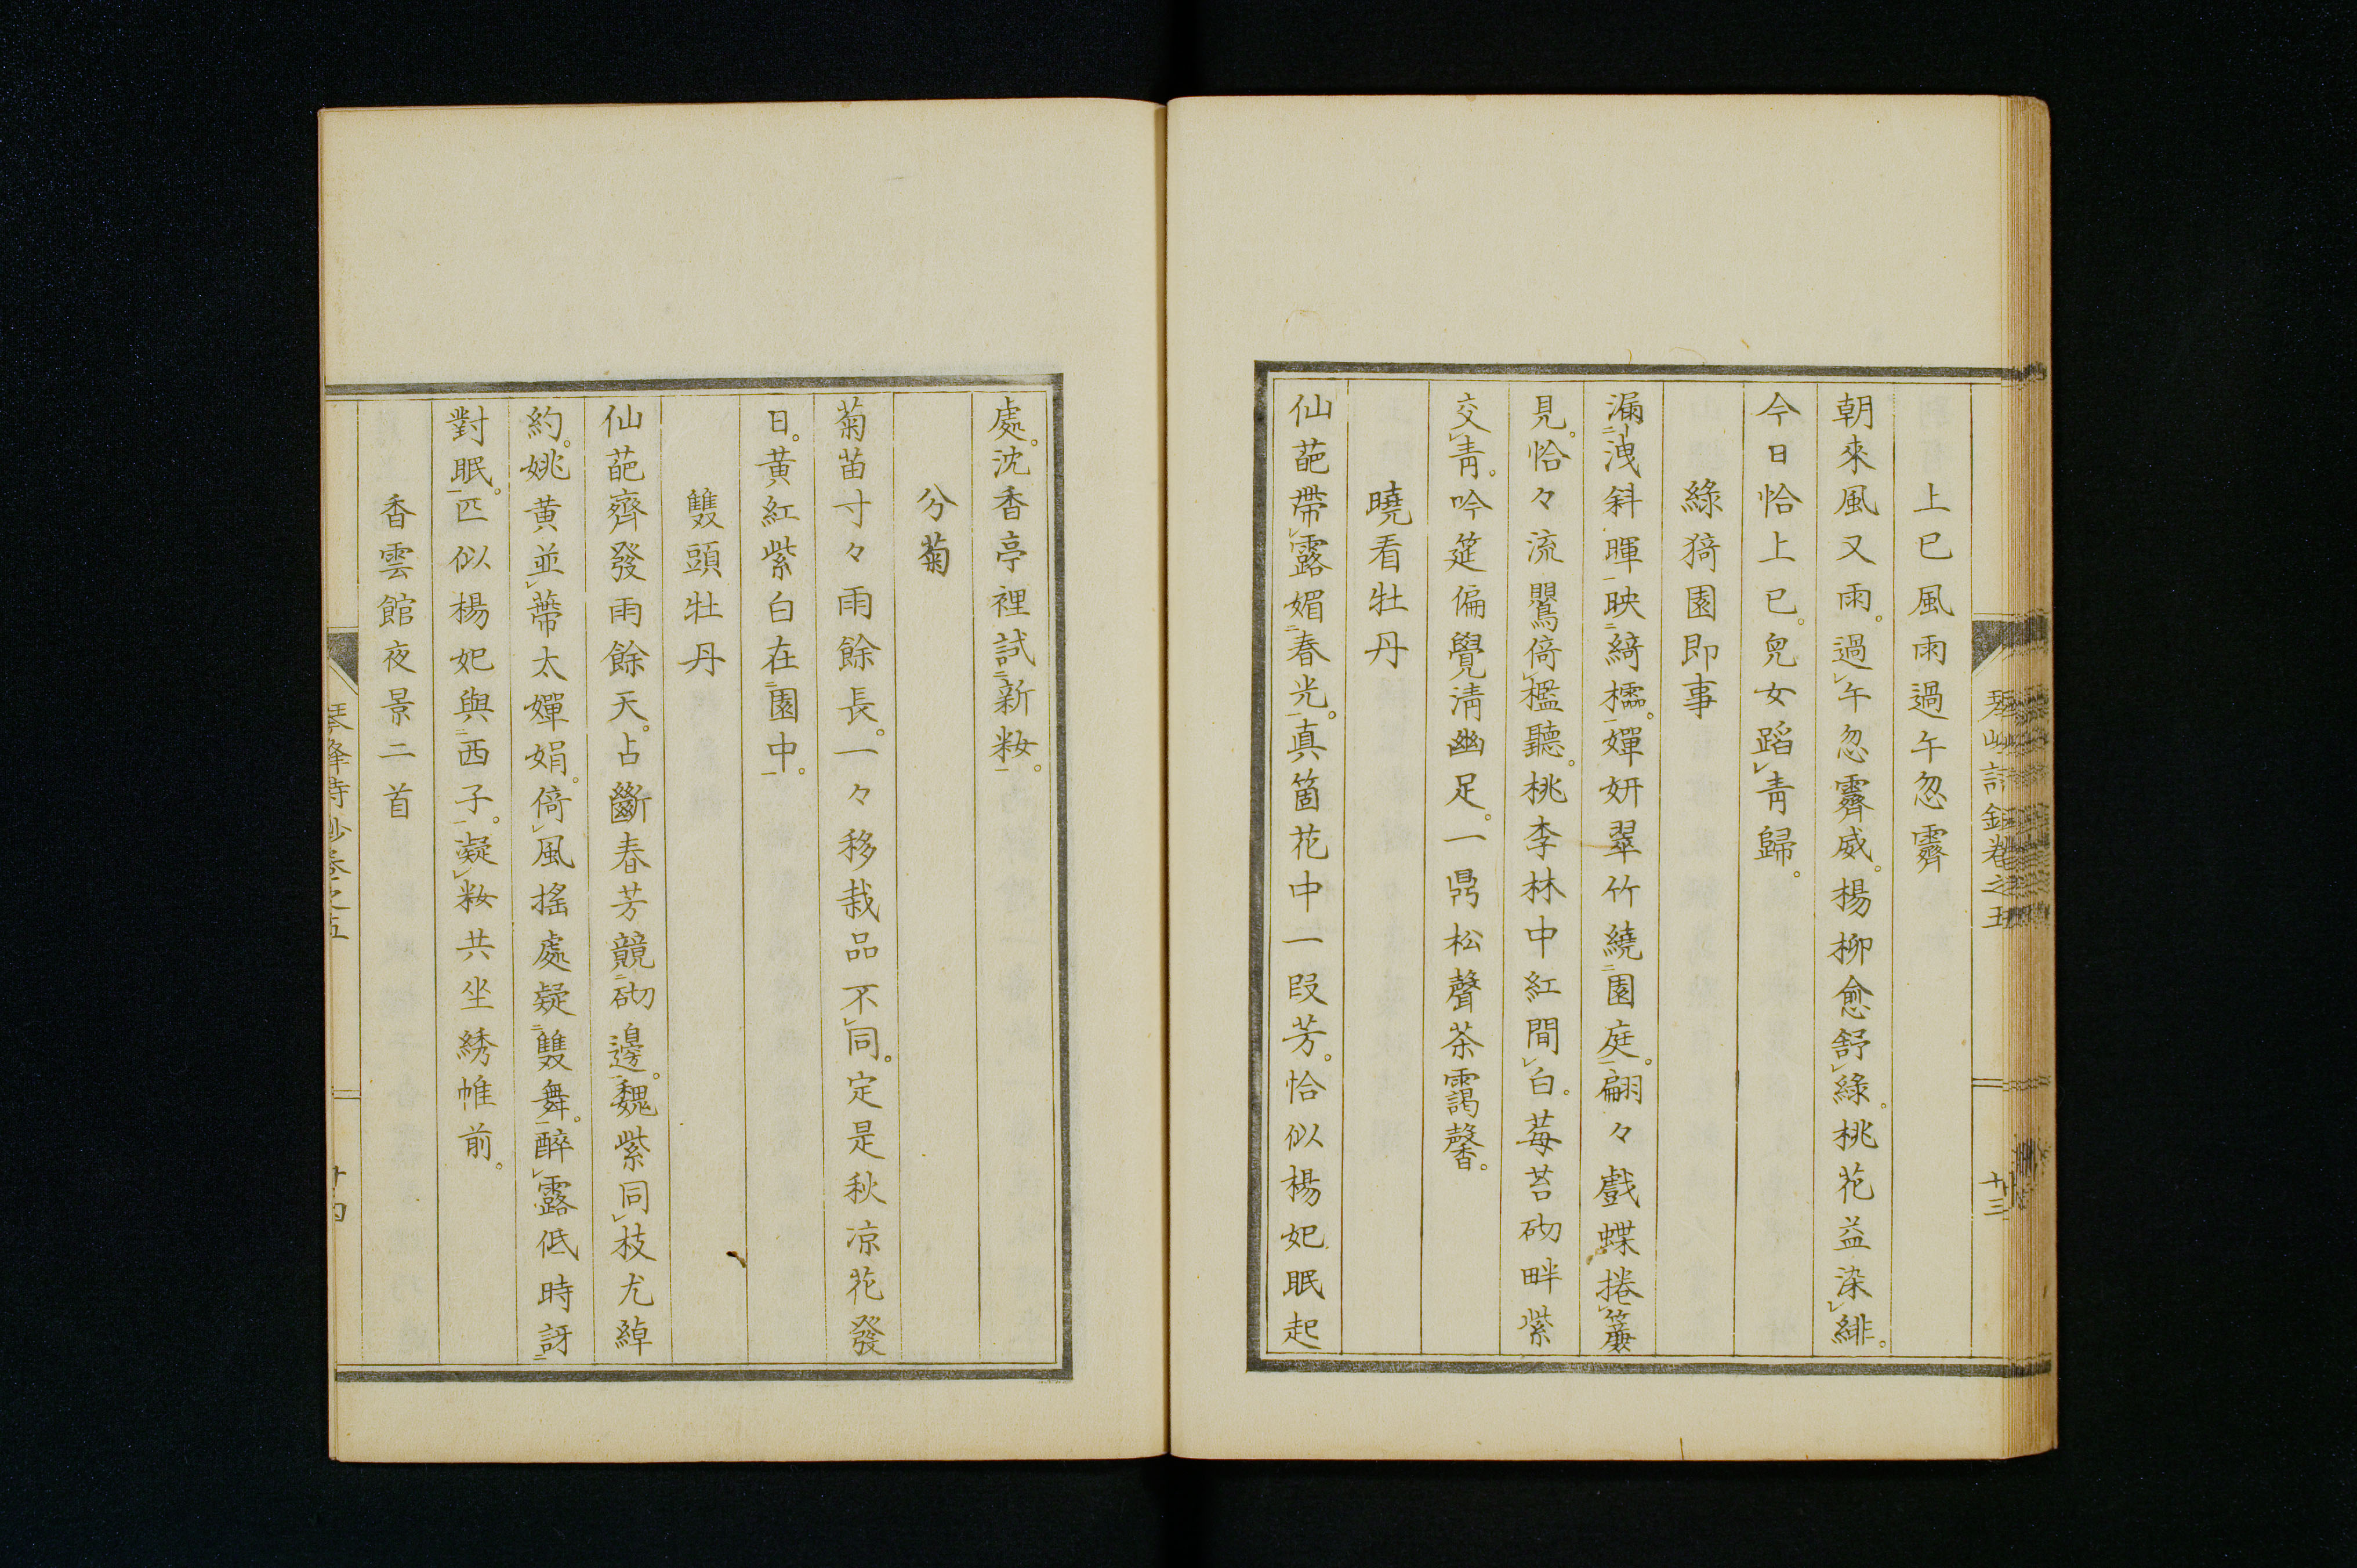 上巳風雨過午忽霽
朝來風又雨。過㆑午忽霽威。楊柳愈舒㆑綠。桃花益染㆑緋。
今日恰上巳。兒女蹈㆑青歸。
綠猗園即事
漏㆓洩斜暉㆒映㆓綺櫺㆒。嬋妍翠竹繞㆓園庭㆒。翩々戲蝶捲㆑簾
見。恰々流鸎倚㆑檻聽。桃李林中紅間㆑白。莓苔砌畔紫
交㆑青。吟筵偏覺清幽足。一鼎松聲茶靄馨。
曉看牡丹
仙葩帶㆑露媚㆓春光㆒。真箇花中一段芳。恰似楊妃眠起
處。沈香亭裡試㆓新粧㆒。
分菊
菊苗寸々雨餘長。一々移栽品不㆑同。定是秋凉花發
日。黃紅紫白在㆓園中㆒。
雙頭牡丹
仙葩齊發雨餘天。占斷春芳競㆓砌邊㆒。魏紫同㆑枝尤綽
約。姚黃並㆑蔕太嬋娟。倚㆑風搖處疑㆓雙舞㆒。醉㆑露低時訝㆓
對眠㆒。匹似楊妃與㆓西子㆒。凝㆑粧共坐綉帷前。
香雲館夜景二首
琴峰詩鈔卷之五
十三
琴峰詩鈔卷之五
十四